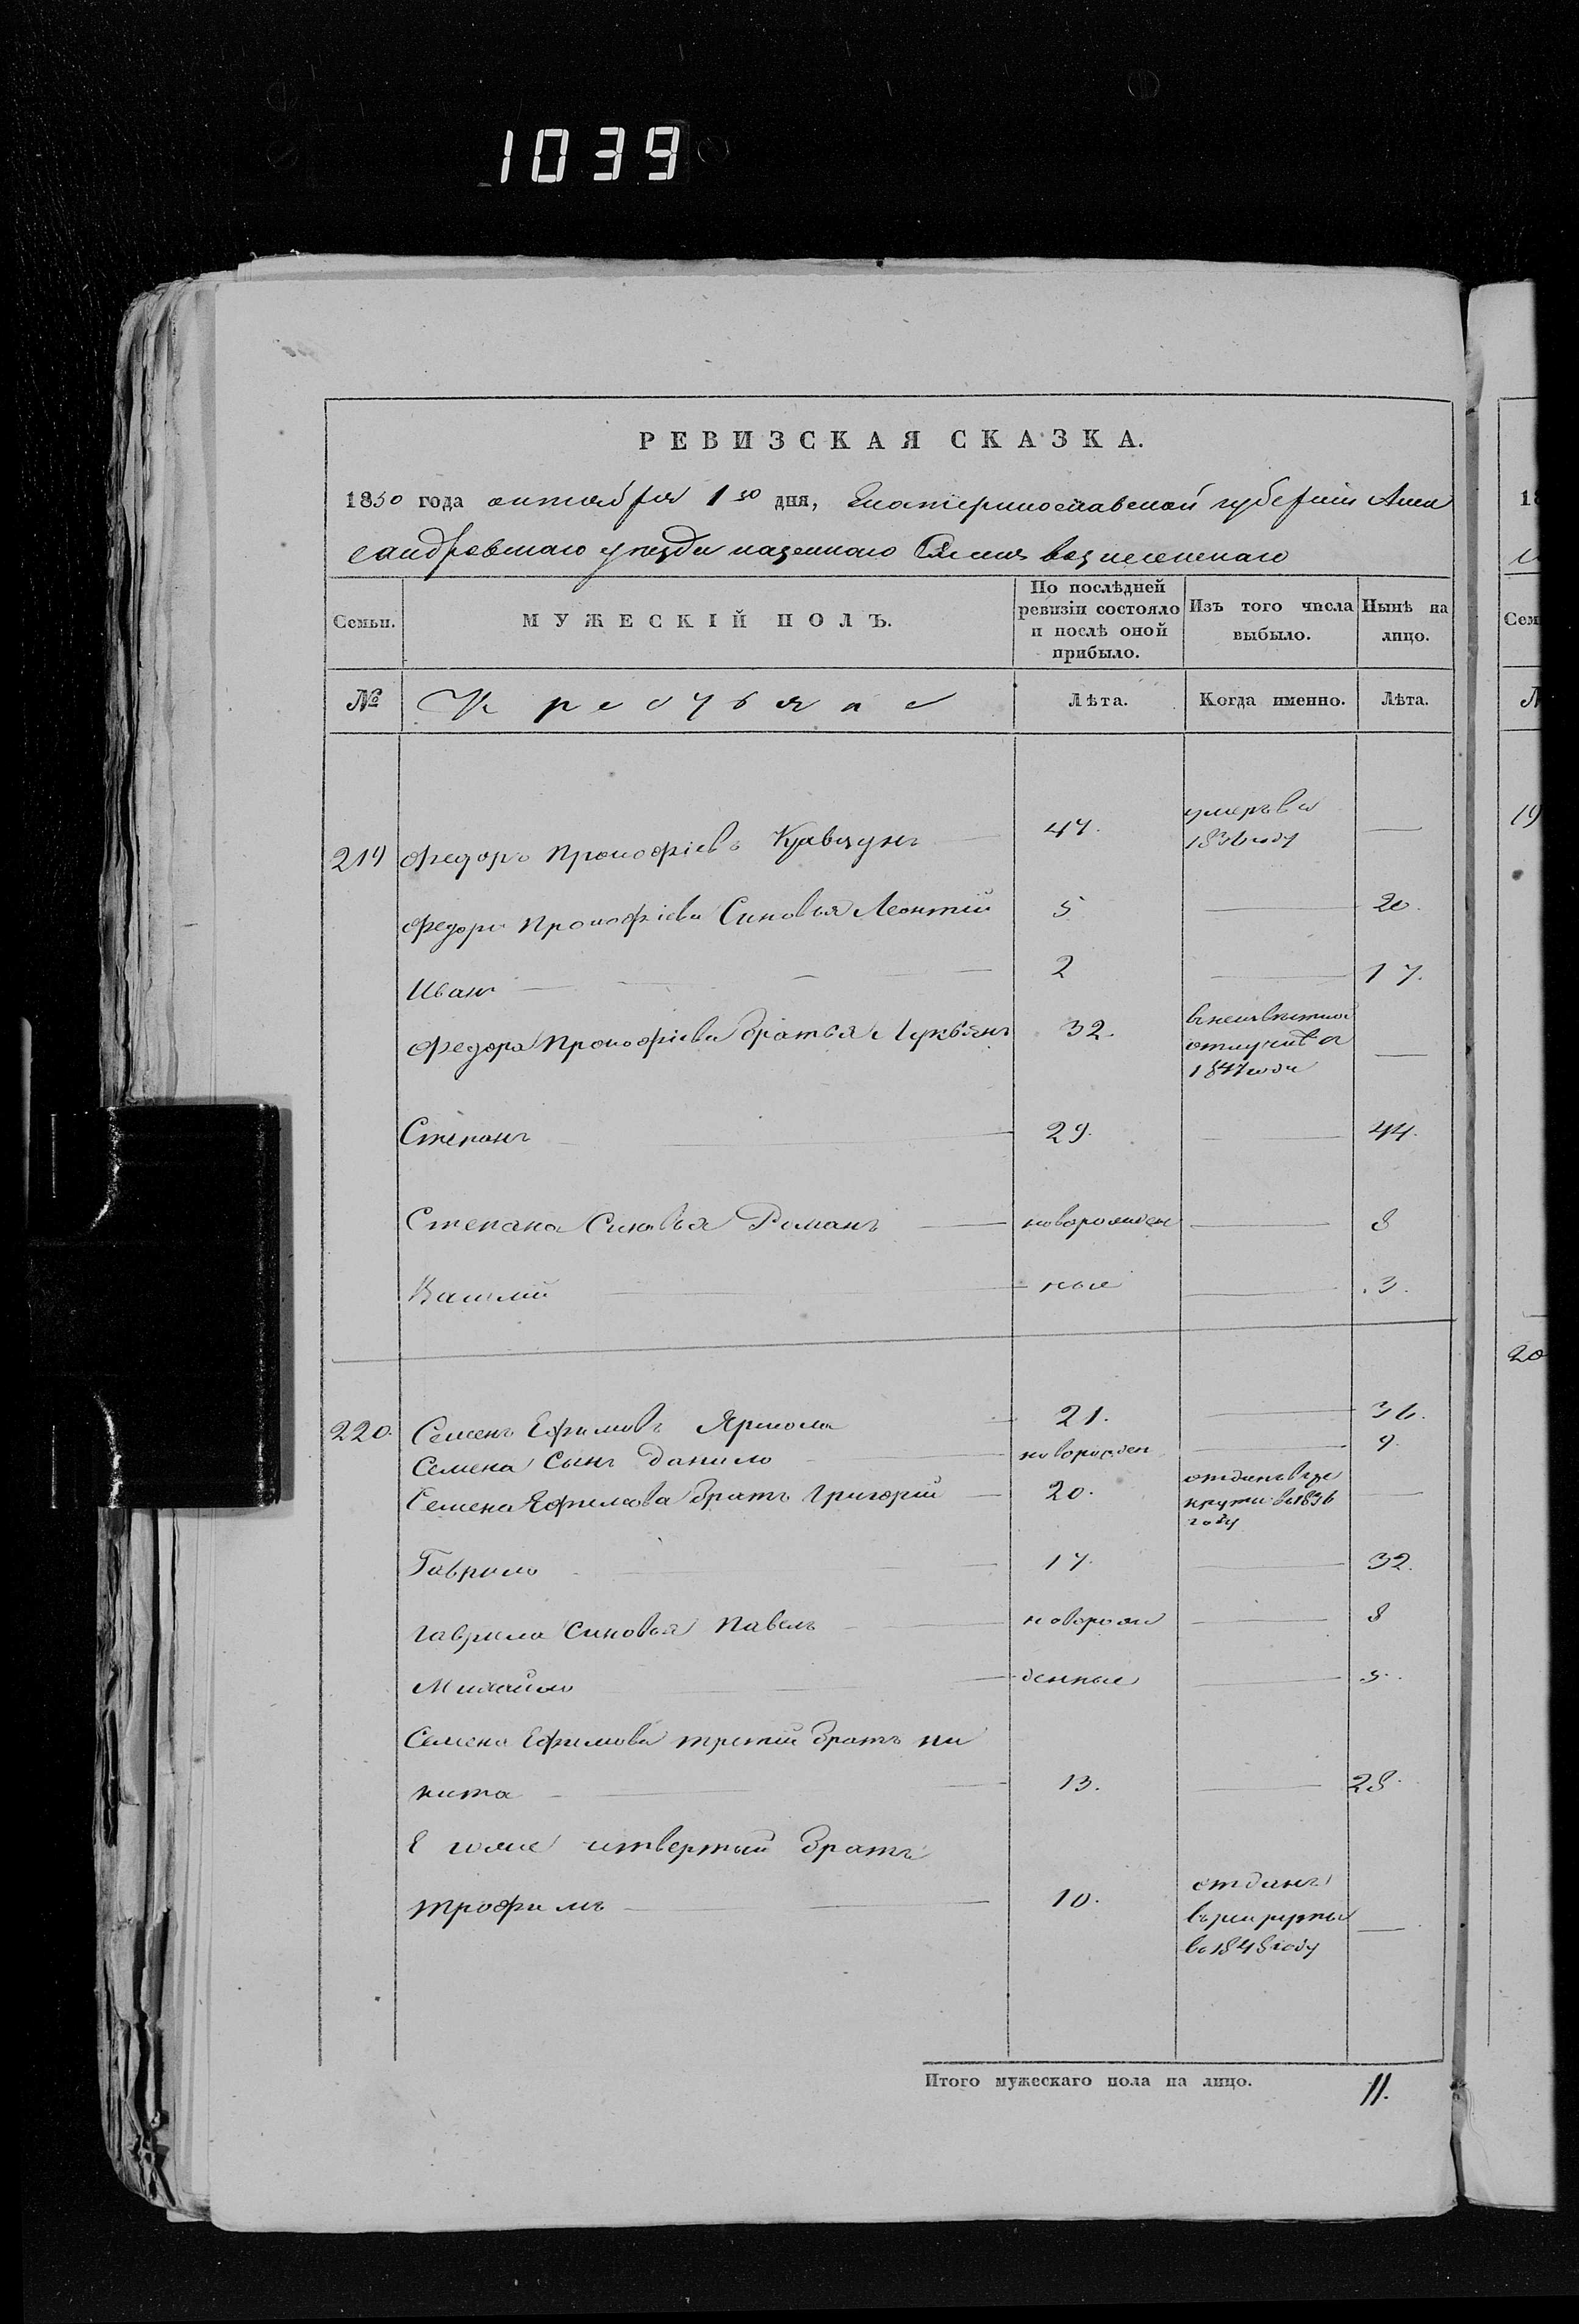 1039
РЕВИЗСКАЯ СКАЗКА.
1850 года октября 1го дня, Екатеринославской губернии Алек
сандровскаго уезда казеннаго Селения вознесенскаго
Семьи. МУЖЕСКІЙ ПОЛЪ. По послѣдней ревизіи состояло и послѣ оной прибыло. Изъ того числа выбыло. Нынѣ на лицо.
№ Крестьяне Лѣта. Когда именно. Лѣта.
219 Федоръ Прокофіевъ Кравцунъ 47. умеръ в 1836 году —
Федора Прокофіева Синовья Леонтий 5 — 20.
Иванъ — 2 — 17.
Федора Прокофіева братья Лукьянъ 32. отлучке 1847 года —
Степанъ — 29. — 44.
Степана Синовья Романъ — новорожден — 8
Василий — ные — 3.
220. Семенъ Ефимовъ Ярмола — 21. — 36.
Семена Сынъ Данило — новорожден — 9
Семена Ефимова братъ Григорий — 20. отданъ в ре крути в 1836 году —
Гаврило — 17. — 32.
Гаврила Синовья Павелъ — новорож — 8
Михайло — денные — 3.
Семена Ефимова третий братъ ни
кита — 13. — 28.
Его же четвертый братъ
трофимъ — 10. отданъ въ рекруты в 1848 году —
Итого мужескаго пола на лицо. 11.
18
Сем
19
20